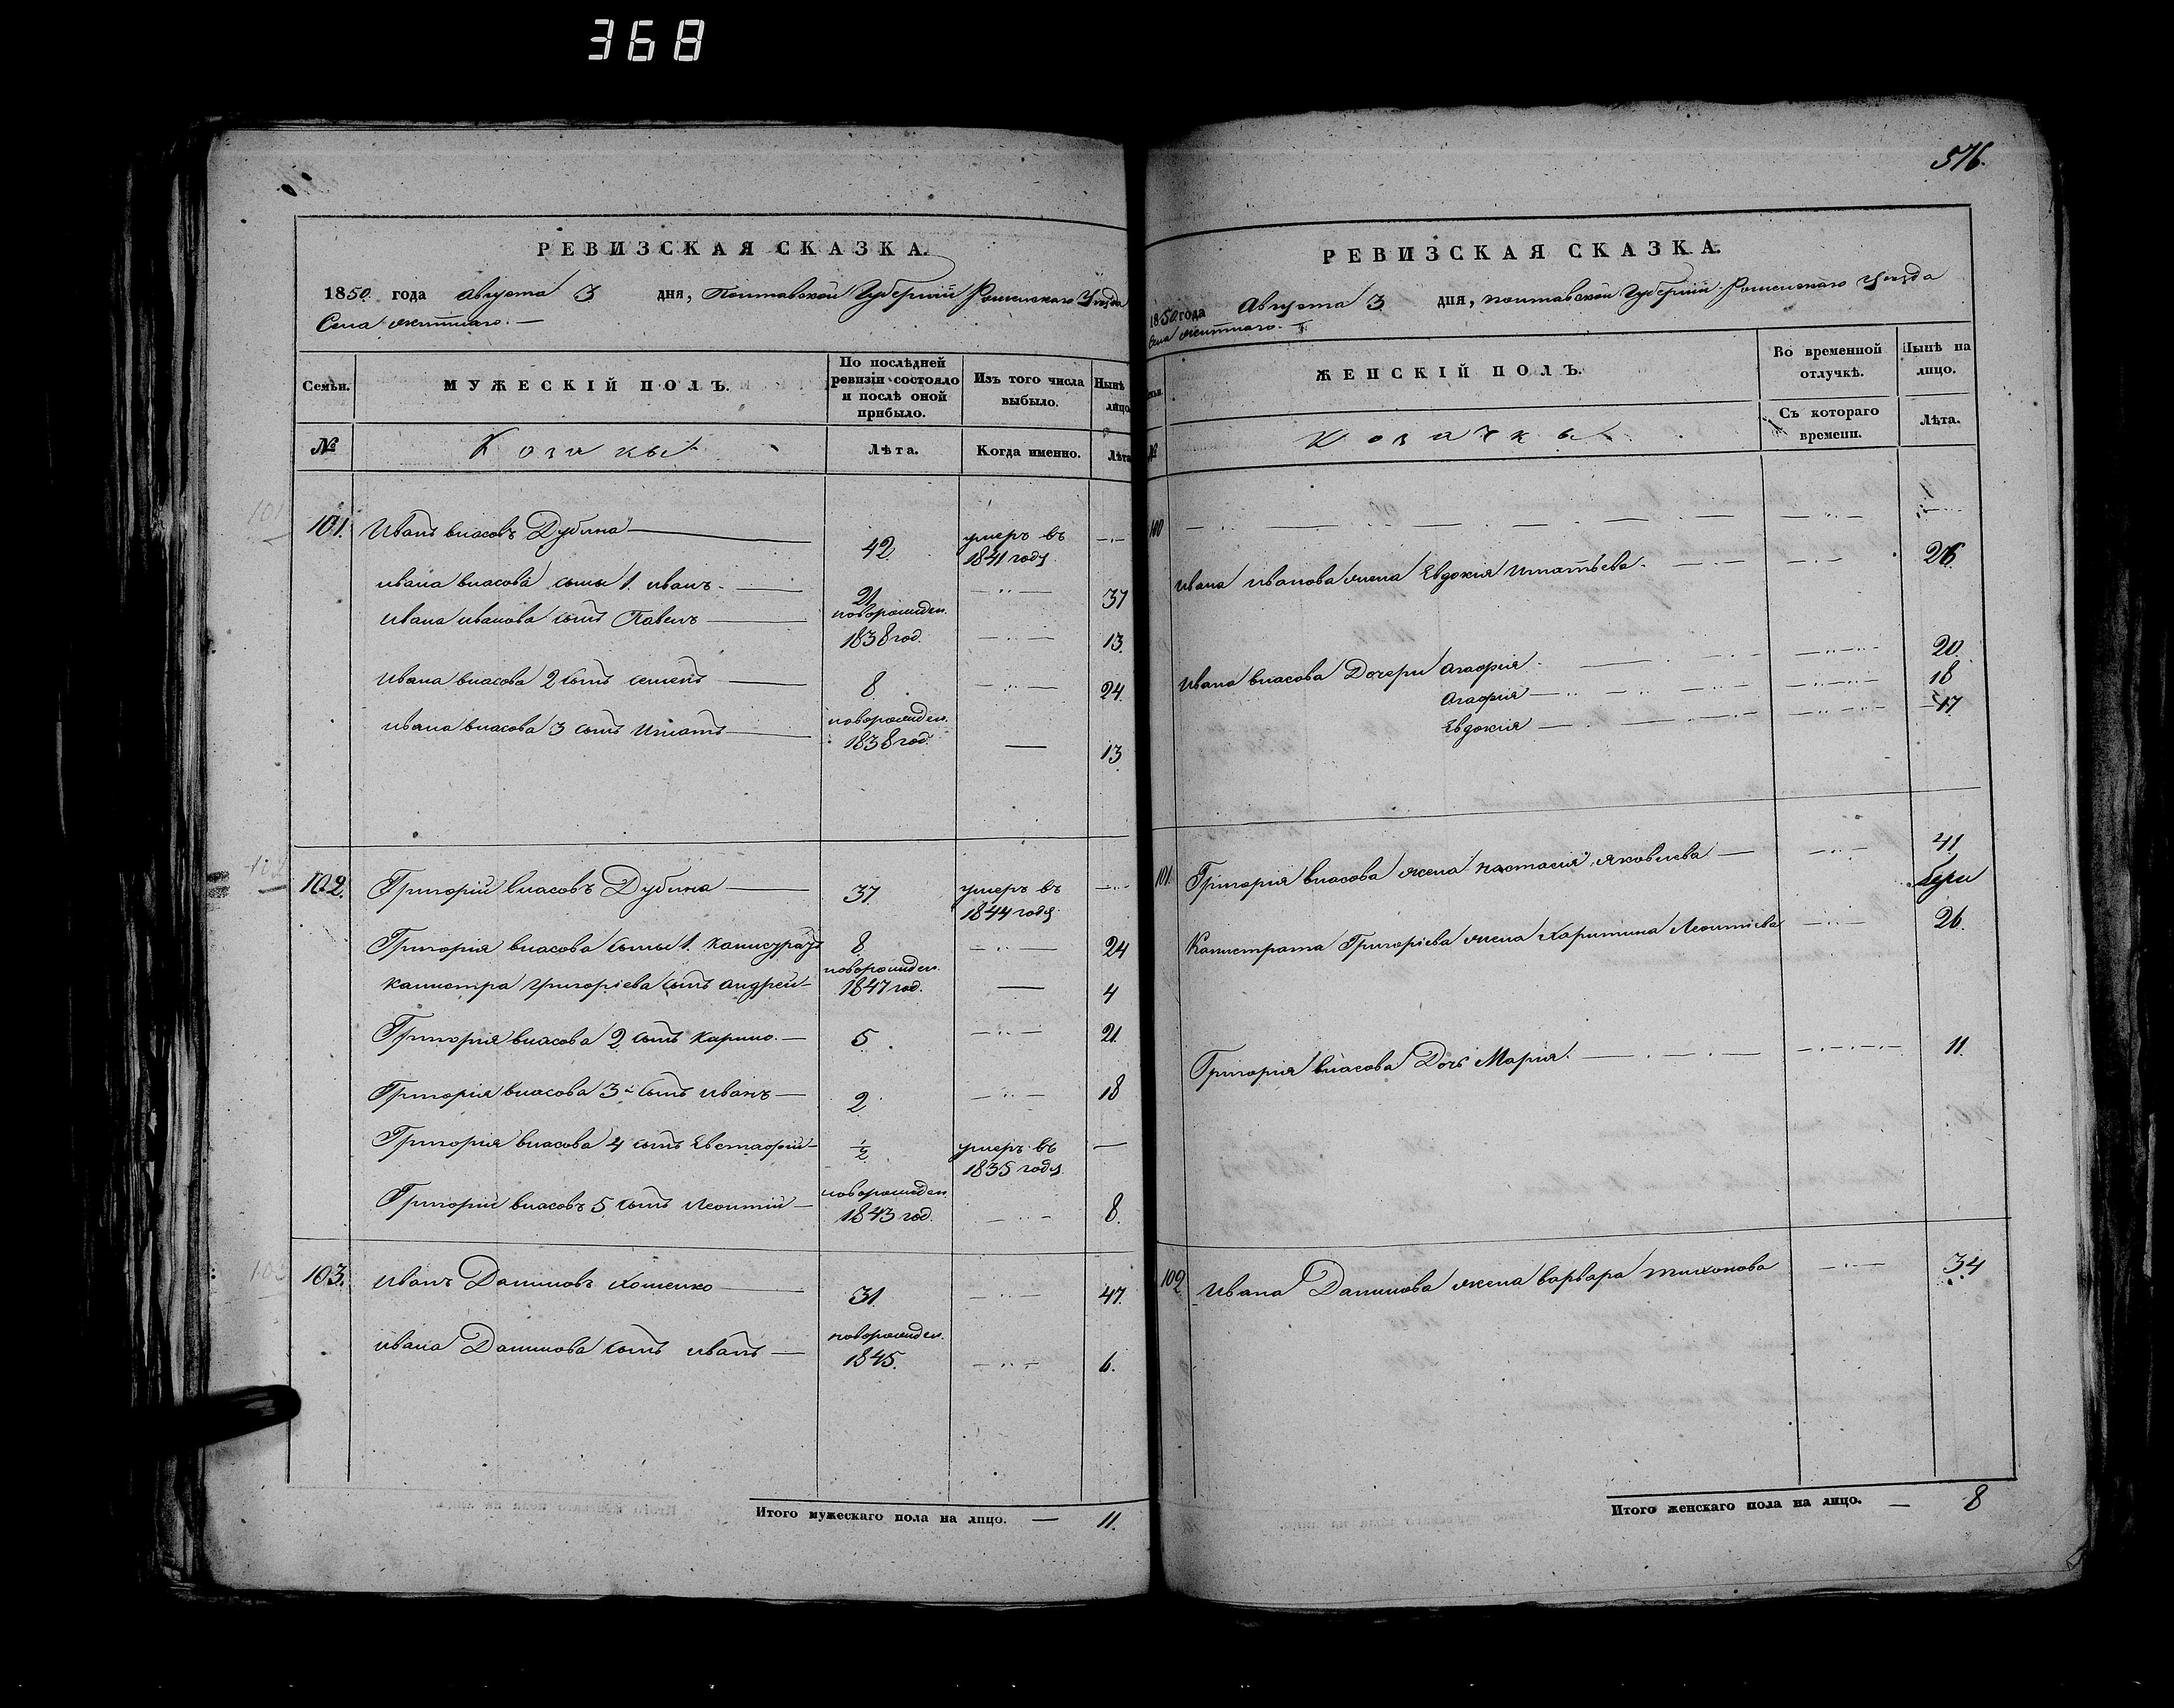 368
РЕВИЗСКАЯ СКАЗКА.
1850 года Августа 3 дня, Полтавской Губерніи Роменскаго Уезда
Села
Семьи.
МУЖЕСКІЙ ПОЛЪ.
По послѣдней ревизіи состояло и послѣ оной прибыло.
Изъ того числа выбыло.
Нынѣ лицо
№
Козаки
Лѣта.
Когда именно.
Лѣта
101. Иванъ власовъ Дубина — 42 умеръ въ 1841 году —
ивана власова сыны 1. иванъ — 21 — 37
ивана иванова сынъ Павелъ — новорожден. 1838 год. — 13.
ивана власова 2 сынъ семенъ — 8 — 24.
ивана власова 3 сынъ Игнатъ — новорожден. 1838 год. — 13
102. Григорій власовъ Дубина — 37 умеръ въ 1844 году —
Григорія власова сыны 1. калистратъ 8. — 24
калистра григоріева сынъ андрей — новорожден. 1847 год. — 4
Григорія власова 2 сынъ карпо. — 5 — 21.
Григорія власова 3й сынъ иванъ — 2 — 18
Григорія власова 4 сынъ Евстафій — ½ умеръ въ 1835 году. —
Григорій власовъ 5 сынъ Леонтій — новорожден 1843 год. — 8.
103. иванъ Даниловъ Хоменко — 31 — 47.
ивана Данилова сынъ иванъ — новорожден. 1845. — 6.
Итого мужескаго пола на лицо. — 11.
576.
РЕВИЗСКАЯ СКАЗКА.
1850 года Августа 3 дня, полтавской Губерніи Роменскаго Уезда
Села
ЖЕНСКІЙ ПОЛЪ.
Во временной отлучкѣ.
Нынѣ на лицо.
№
Козачки
Съ котораго времени.
Лѣта.
100
ивана иванова жена Евдокія Игнатьева — 26
ивана власова Дочери агафія — 20.
агафия — 18
Евдокія — 17
101. Григорія власова жена настасия яковлева — 41
Калистрата Григоріева жена Харитина Леонтіева — 26.
Григорія власова Дочь Марія. — 11.
102 ивана Данилова жена варвара тихонова — 34
Итого женскаго пола на лицо. — 8